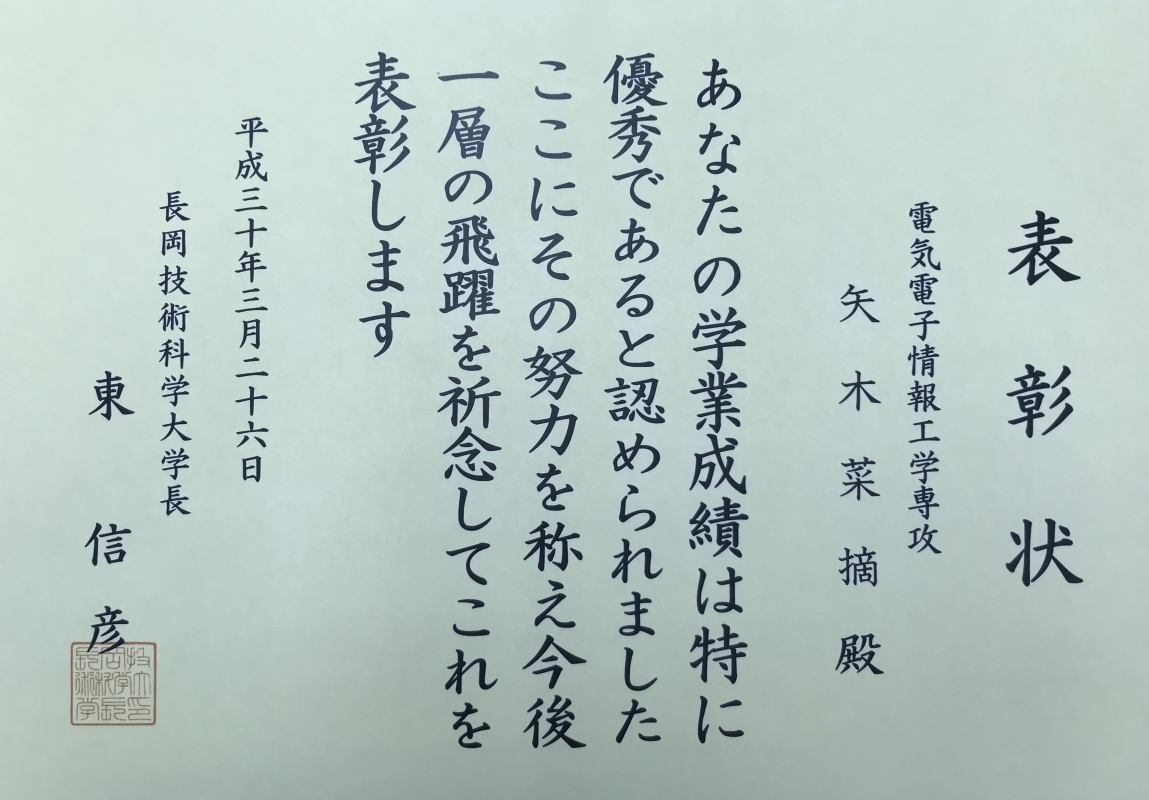 表彰状
電気電子情報工学専攻
矢木菜摘殿
あなたの学業成績は特に
優秀であると認められました
ここにその努力を称え今後
一層の飛躍を祈念してこれを
表彰します
平成三十年三月二十六日
長岡技術科学大学長
東信彦